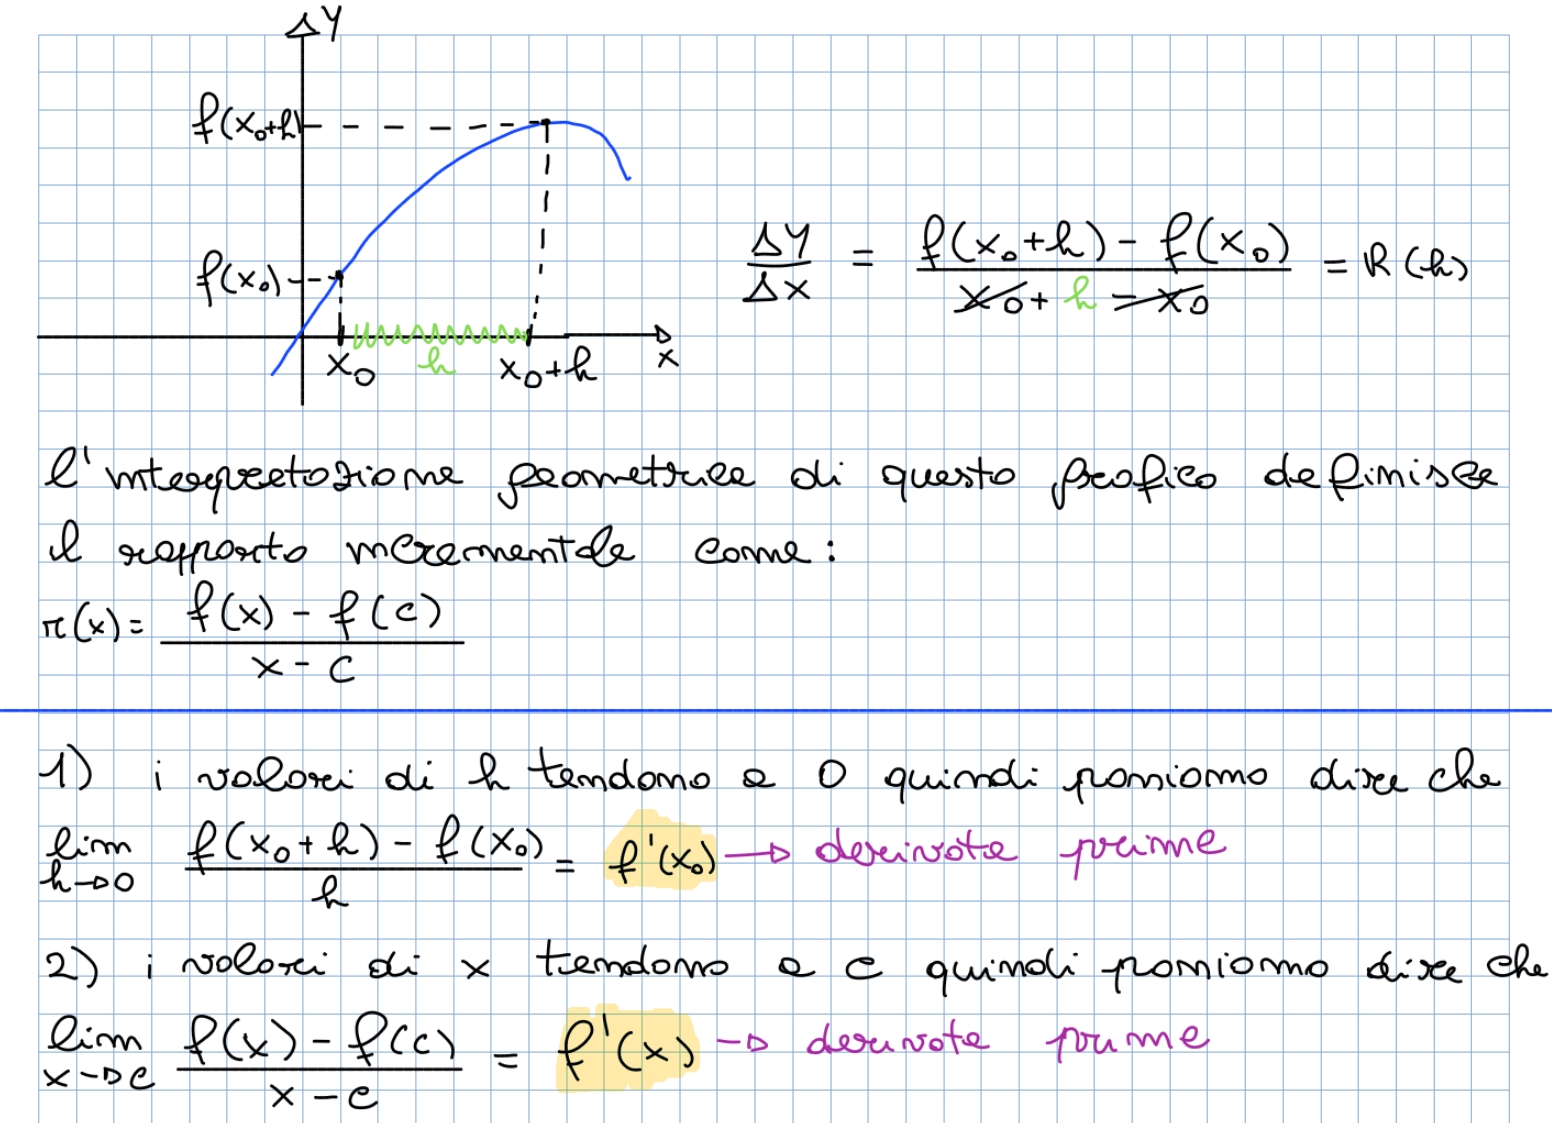 Y
f(x₀+h)
f(x₀)
x₀ h x₀+h x
ΔY/Δx = (f(x₀+h) - f(x₀))/(x₀ + h - x₀) = R(h)
l'interpretazione geometrica di questo grafico definisce
il rapporto incrementale come:
r(x) = (f(x) - f(c))/(x - c)
1) i valori di h tendono a 0 quindi possiamo dire che
lim h→0 (f(x₀+h) - f(x₀))/h = f'(x₀) → derivata prima
2) i valori di x tendono a c quindi possiamo dire che
lim x→c (f(x) - f(c))/(x - c) = f'(x) → derivata prima